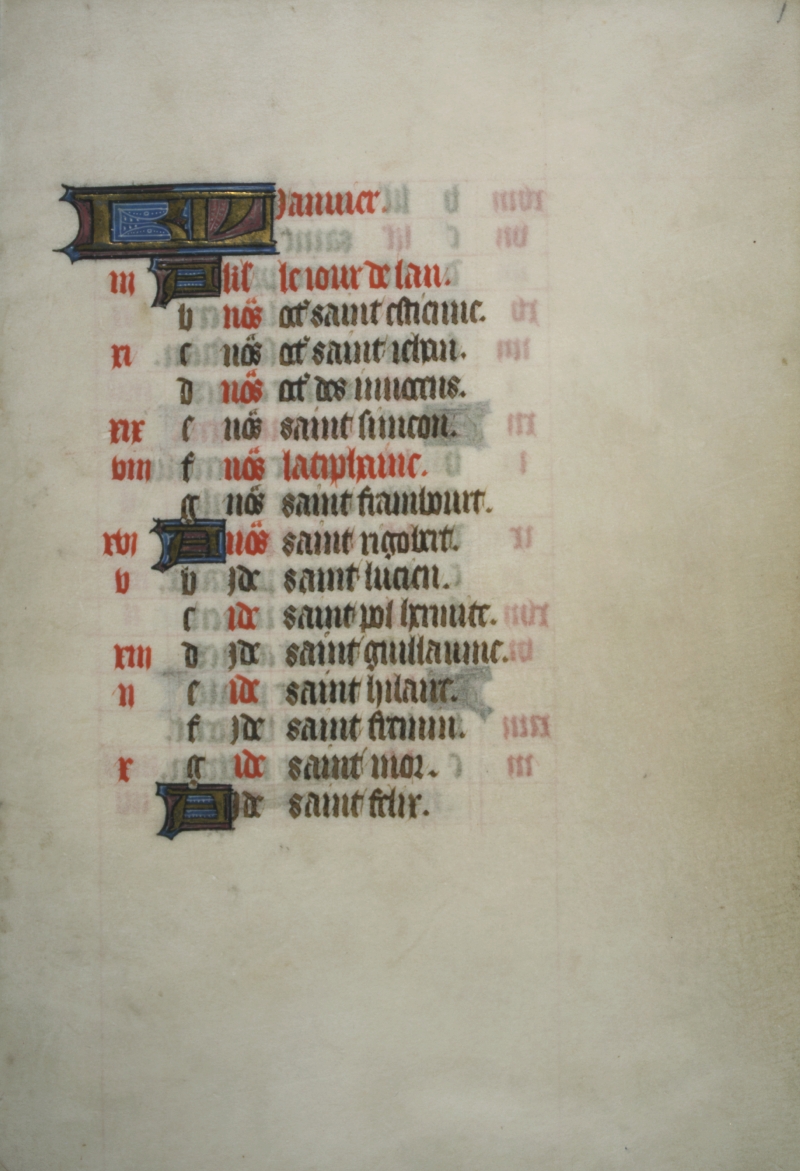 1
KL Januier.
iii A lis le iour de lan.
b nos oct saint estienne.
xi c nos oct saint iehan.
d nos oct des innocens.
xix e nos saint simeon.
viii f nos la tiphaine.
g nos saint frambourt.
xvi A nos saint rigobert.
v b ide saint lucien.
c ide saint pol hermite.
xiii d ide saint guillaume.
ii e ide saint hilaire.
f ide saint firmin.
x g ide saint mor.
A ide saint felix.